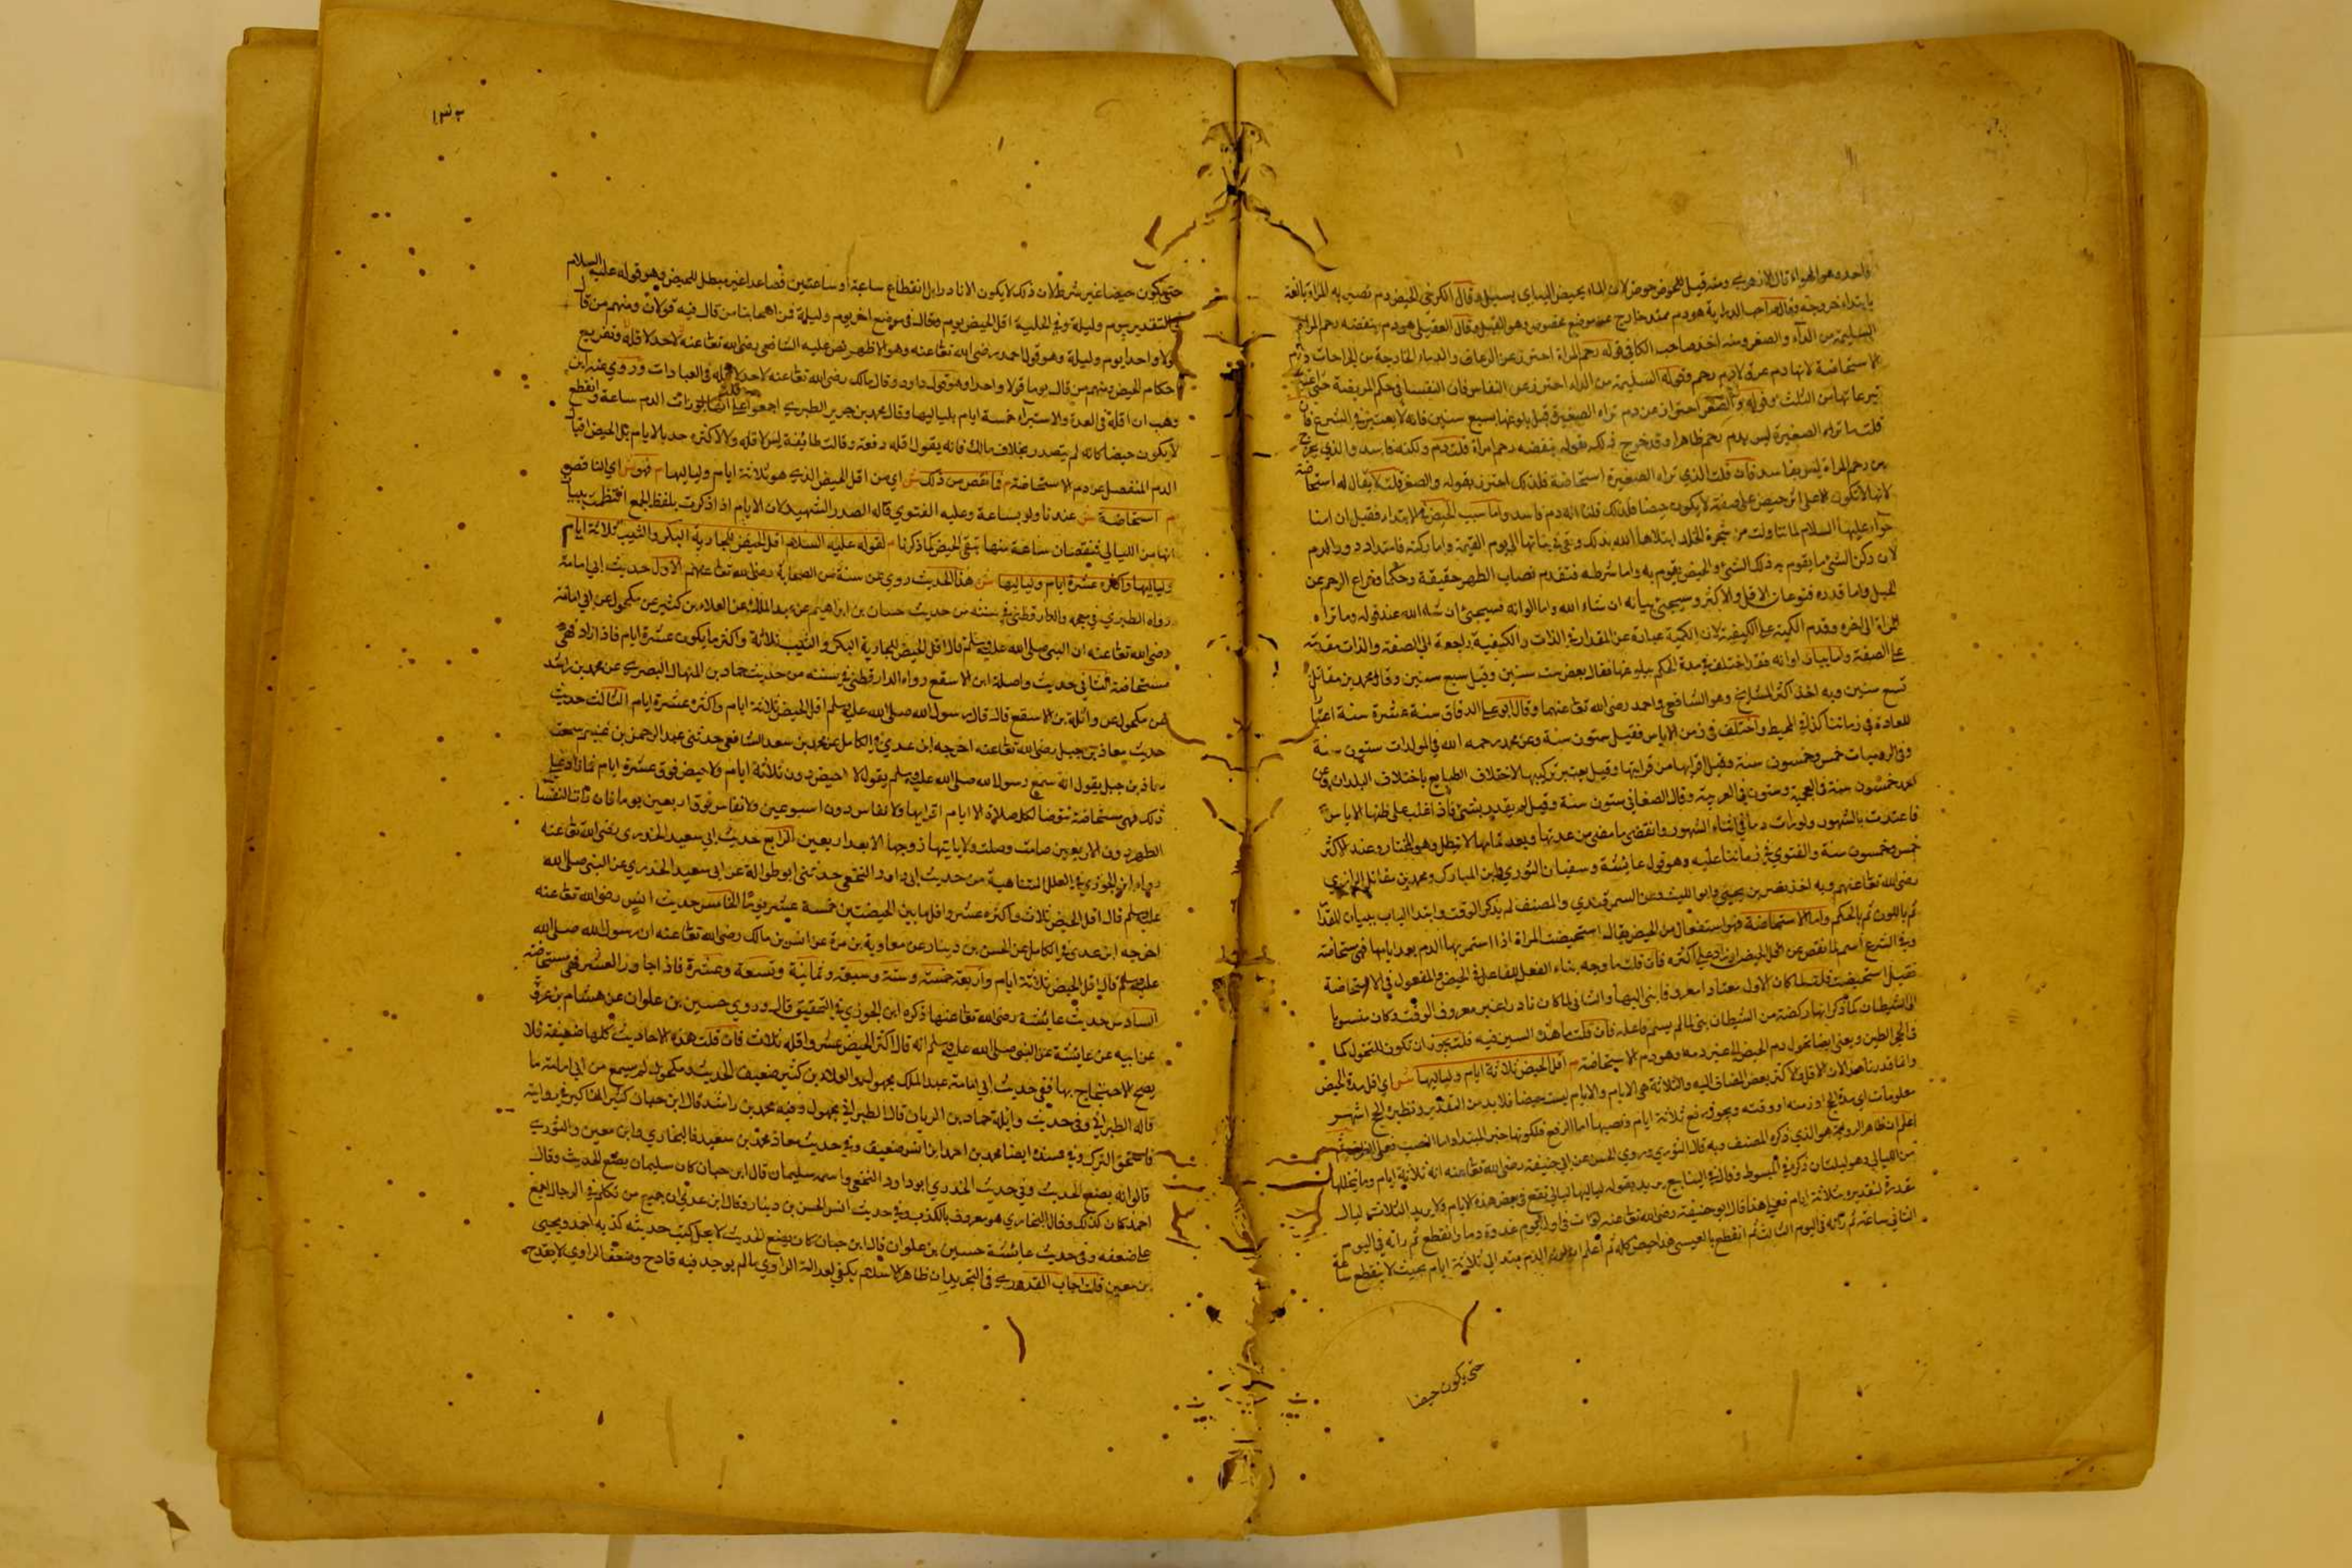 واحد وهو الهواء قال الازهري ومنه قيل للحوض حوض لان الماء يحيض اليه اي يسيل وقال الكرخي الحيض دم تصير به المراة بالغة
بابتداء خروجه وقال صاحب الدراية هو دم ممتد خارج عن موضع مخصوص وهو القبل وقال العقيلي هو دم ينفضه رحم المراة
السليمة من الداء والصغر ومنه اخذ صاحب الكافي قوله رحم المراة احترز عن الرعاف والدماء الخارجة من الجراحات ودم
الاستحاضة لانها دم عرق لا دم رحم وقوله السليمة من الداء احترز عن النفاس فان النفسا في حكم المريضة حتى اعتبر
تبرعاتها من الثلث وقوله والصغر احتراز عن دم تراه الصغيرة قبل بلوغها سبع سنين فانه لا يعتبر في الشرع فان
قلت ما تراه الصغيرة ليس بدم رحم ظاهرا وقد خرج ذلك بقوله ينفضه رحم امراة قلت دم ولكنه فاسد والذي يخرج
من رحم المراة ليس بفاسد فان قلت الذي تراه الصغيرة استحاضة فلذلك احترز بقوله والصغر قلت لا يقال له استحاضة
لانها لا تكون الا على اثر حيض على صفة لا يكون حيضا فلذلك قلنا انه دم فاسد واما سبب الحيض في الابتداء فقيل ان امنا
حواء عليها السلام لما تناولت من شجرة الخلد ابتلاها الله بذلك وبقي في بناتها الى يوم القيمة واما ركنه فامتداد درور الدم
لان ركن الشيء ما يقوم به ذلك الشيء والحيض يقوم به واما شرطه فتقدم نصاب الطهر حقيقة وحكما وفراغ الرحم عن
الحبل واما قدره فنوعان الاقل والاكثر وسيجيء بيانه ان شاء الله واما الوانه فسيجيء ان شاء الله عند قوله وما تراه
المراة الى اخره وقدم الكمية على الكيفية لان الكمية عبارة عن المقدار في الذات والكيفية راجعة الى الصفة والذات مقدمة
على الصفة واما بيان اوانه فقد اختلف في مدة الحكم ببلوغها فقال بعض ست سنين وقيل سبع سنين وقال محمد بن مقاتل
تسع سنين وبه اخذ اكثر المشايخ وهو الشافعي واحمد رضي الله تعا عنهما وقال ابو علي الدقاق سنة عشرة سنة اعتبارا
للعادة في زماننا كذا في المحيط واختلف في زمن الاياس فقيل ستون سنة وعن محمد رحمه الله في المولدات ستون سنة
وفي الروميات خمس وخمسون سنة وقيل اقرانها من قرابتها وقيل يعتبر تركيبها لاختلاف الطبايع باختلاف البلدان وعن
خمسون سنة في العجمية وستون في العربية وقال الصغاني ستون سنة وقيل لم يقدر بشيء فاذا غلب على ظنها الاياس
فاعتدت بالشهور ولو رات دما في اثناء الشهور وانتقض ما مضى من عدتها وبعد تمامها لا تبطل وهو المختار وعند الاكثر
خمس وخمسون سنة والفتوى في زماننا عليه وهو قول عائشة وسفيان الثوري وابن المبارك ومحمد بن مقاتل الرازي
رضي الله تعا عنهم وبه اخذ نصر بن يحيى وابو الليث وعن السمرقندي والمصنف لم يذكر الوقت وابتدا الباب ببيان المقدار
ثم باللون ثم بالحكم واما الاستحاضة فهو استفعال من الحيض يقال استحيضت المراة اذا استمر بها الدم بعد ايامها فهي مستحاضة
وفي الشرع اسم لما نقص عن اقل الحيض او زاد على اكثره فان قلت ما وجه بناء الفعل للفاعل في الحيض والمفعول في الاستحاضة
فقيل استحيضت قلت لما كان الاول معتادا معروفا بني اليها والثاني لما كان نادرا غير معروف الوقت وكان منسوبا
الى الشيطان كما ذكر انها ركضة من الشيطان بني لما لم يسم فاعله فان قلت ما هذه السين فيه قلت يجوز ان تكون للتحول كما
في الحجر الطين وبعض ايضا تحول دم الحيض الى غير دمه وهو دم الاستحاضة م اقل الحيض ثلاثة ايام ولياليها ش اي اقل مدة الحيض
وانما قدرنا هذا لان الاقل والاكثر بعض المضاف اليه والثلاثة هي الايام والايام ليست حيضا فلا بد من التقدير ونظيره الحج اشهر
معلومات اي مدة الحج او زمنه او وقته ويجوز رفع ثلاثة ايام ونصبها اما الرفع فلكونها خبر المبتدا واما النصب فعلى الظرفية
اعلم ان ظاهر الرواية هو الذي ذكره المصنف وبه قال الثوري وروى الحسن عن ابي حنيفة رضي الله تعا عنه انه ثلاثة ايام وما يتخللها
من الليالي وهو ليلتان ذكره في المبسوط وقال في الينابيع يريد بقوله لياليها ليالي تقع في بعض هذه الايام ولا يريد الثلاث ليال
مقدرة لتقديره بثلاثة ايام فعلى هذا قال ابو حنيفة رضي الله تعا عنه لو رات في اول يوم غدوة دما وانقطع ثم راته في اليوم
الثاني ساعة ثم راته في اليوم الثالث ثم انقطع بالعيسى هذا حيض كله ثم اعلم ان كون الدم ممتدا الى ثلاثة ايام بحيث لا ينقطع ساعة
حتى يكون حيضا
١٣٣
حتى يكون حيضا غير شرط لان ذلك لا يكون الا نادرا بل انقطاع ساعة او ساعتين فصاعدا غير مبطل للحيض وهو قوله عليه السلام
في التقدير بيوم وليلة وفي الحلية اقل الحيض يوم وقال في موضع اخر يوم وليلة فمن اصحابنا من قال فيه قولان ومنهم من قال
قولا واحدا يوم وليلة وهو قول احمد رضي الله تعا عنه وهو الاظهر نص عليه الشافعي رضي الله تعا عنه لاحد لاقله وتفريع
احكام الحيض ومنهم من قال يوما قولا واحدا وهو قول داود وقال مالك رضي الله تعا عنه لا حد لاقله في العبادات وروي عنه ابن
وهب ان اقله في العدة والاستبراء خمسة ايام بلياليها وقال محمد بن جرير الطبري اجمعوا على انها لو رات الدم ساعة وانقطع
لا يكون حيضا كانه لم يتصدر بخلاف مالك فانه يقول اقله دفعة وقالت طائفة ليس لاقله ولا لاكثره حد بالايام بل الحيض اقبال
الدم المنفصل عن دم الاستحاضة م فما نقص من ذلك ش اي من اقل الحيض الذي هو ثلاثة ايام ولياليها م فهو ش اي الناقص
م استحاضة ش عندنا ولو بساعة وعليه الفتوى قاله الصدر الشهيد لان الايام اذا ذكرت بلفظ الجمع
انها من الليالي فنقصان ساعة منها تبقى الحيض كما ذكرنا م لقوله عليه السلام اقل الحيض للجارية البكر والثيب ثلاثة ايام
ولياليها واكثره عشرة ايام ولياليها ش هذا الحديث روي عن ستة من الصحابة رضي الله تعا عنهم الاول حديث ابي امامة
رواه الطبري في معجمه والدارقطني في سننه من حديث حسان بن ابراهيم عن عبد الملك عن العلاء بن كثير عن مكحول عن ابي امامة
رضي الله تعا عنه ان النبي صلى الله عليه وسلم قال اقل الحيض للجارية البكر والثيب ثلاثة واكثر ما يكون عشرة ايام فاذا زاد فهي
مستحاضة الثاني حديث واصلة ابن الاسقع رواه الدارقطني في سننه من حديث حماد بن المنهال البصري عن محمد بن راشد
عن مكحول عن واثلة بن الاسقع قال قال رسول الله صلى الله عليه وسلم اقل الحيض ثلاثة ايام واكثره عشرة ايام الثالث حديث
حديث معاذ بن جبل رضي الله تعا عنه اخرجه ابن عدي في الكامل عن محمد بن سعد الشافعي حدثني عبد الرحمن بن غنيم سمعت
معاذ بن جبل يقول انه سمع رسول الله صلى الله عليه وسلم يقول لا حيض دون ثلاثة ايام ولا حيض فوق عشرة ايام فما زاد على
ذلك فهي مستحاضة تتوضا لكل صلاة الا ايام اقرايها ولا نفاس دون اسبوعين ولا نفاس فوق اربعين يوما فان رات النفسا
الطهر دون الاربعين صامت وصلت ولا ياتيها زوجها الا بعد اربعين الرابع حديث ابي سعيد الخدري رضي الله تعا عنه
رواه ابن الجوزي في العلل المتناهية من حديث ابي داود النخعي حدثني ابو طوالة عن ابي سعيد الخدري عن النبي صلى الله
عليه وسلم قال اقل الحيض ثلاث واكثره عشر واقل ما بين الحيضتين خمسة عشر يوما الخامس حديث انس رضي الله تعا عنه
اخرجه ابن عدي في الكامل عن الحسن بن دينار عن معاوية بن مرة عن انس بن مالك رضي الله تعا عنه ان رسول الله صلى الله
عليه وسلم قال اقل الحيض ثلاثة ايام واربعة وخمسة وستة وسبعة وثمانية وتسعة وعشرة فاذا جاوز العشر فهي مستحاضة
السادس حديث عائشة رضي الله تعا عنها ذكره ابن الجوزي في التحقيق قال وروي حسين بن علوان عن هشام بن عروة
عن ابيه عن عائشة عن النبي صلى الله عليه وسلم انه قال اكثر الحيض عشر واقله ثلاث فان قلت هذه الاحاديث كلها ضعيفة فلا
يصح الاحتجاج بها ففي حديث ابي امامة عبد الملك مجهول والعلاء بن كثير ضعيف الحديث ومكحول لم يسمع من ابي امامة ما
قاله الطبراني وفي حديث واثلة حماد بن المنهال قال الطبراني مجهول وفيه محمد بن راشد قال ابن حبان كثير المناكير في روايته
فاستحق الترك وفي مسنده ايضا محمد بن احمد بن انس ضعيف وفي حديث معاذ محمد بن سعيد قال البخاري وابن معين والثوري
قالوا انه يضع الحديث وفي حديث الخدري ابو داود النخعي واسمه سليمان قال ابن حبان كان سليمان يضع الحديث وقال
احمد كان كذلك وقال البخاري هو معروف بالكذب وفي حديث انس الحسن بن دينار وقال ابن عدي ان جميع من تكلم في الرجال اجمع
على ضعفه وفي حديث عائشة حسين بن علوان قال ابن حبان كان يضع الحديث لا يحل كتب حديثه كذبه احمد ويحيى
بن معين قلت اجاب القدوري في التجريد ان ظاهر الاسلام يكفي لعدالة الراوي ما لم يوجد فيه قادح وضعف الراوي لا يقدح